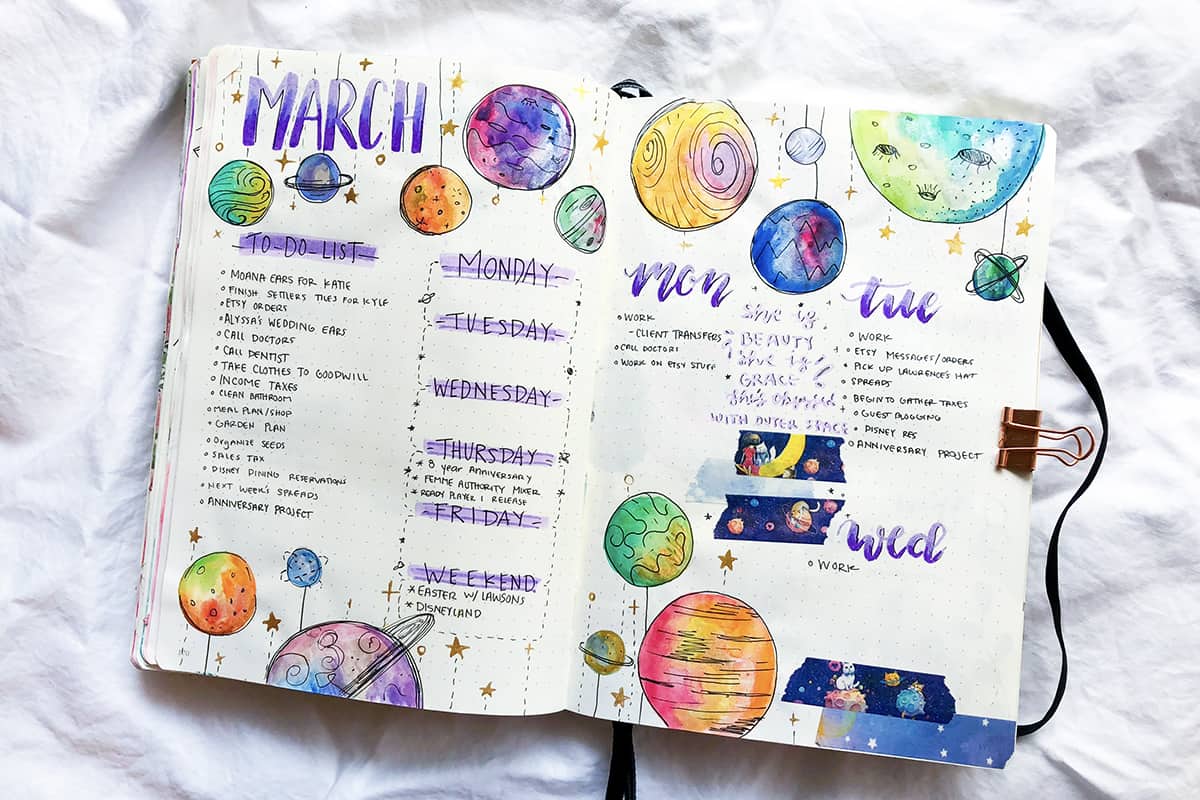 MARCH
TO-DO-LIST
MOANA EARS FOR KATIE
FINISH SETTLERS TILES FOR KYLE
ETSY ORDERS
ALYSSA'S WEDDING EARS
CALL DOCTORS
CALL DENTIST
TAKE CLOTHES TO GOODWILL
INCOME TAXES
CLEAN BATHROOM
MEAL PLAN/SHOP
GARDEN PLAN
ORGANIZE SEEDS
SALES TAX
DISNEY DINING RESERVATIONS
NEXT WEEK'S SPREADS
ANNIVERSARY PROJECT
MONDAY
TUESDAY
WEDNESDAY
THURSDAY
* 8 YEAR ANNIVERSARY
* FEMME AUTHORITY MIXER
* READY PLAYER 1 RELEASE
FRIDAY
WEEKEND
* EASTER W/ LAWSONS
* DISNEYLAND
mon
WORK
- CLIENT TRANSFERS
CALL DOCTORS
WORK ON ETSY STUFF
She is
BEAUTY
She is
GRACE
She's obsessed
WITH OUTER SPACE
tue
WORK
ETSY MESSAGES/ORDERS
PICK UP LAWRENCE'S HAT
SPREADS
BEGIN TO GATHER TAXES
GUEST BLOGGING
DISNEY RES
ANNIVERSARY PROJECT
wed
WORK